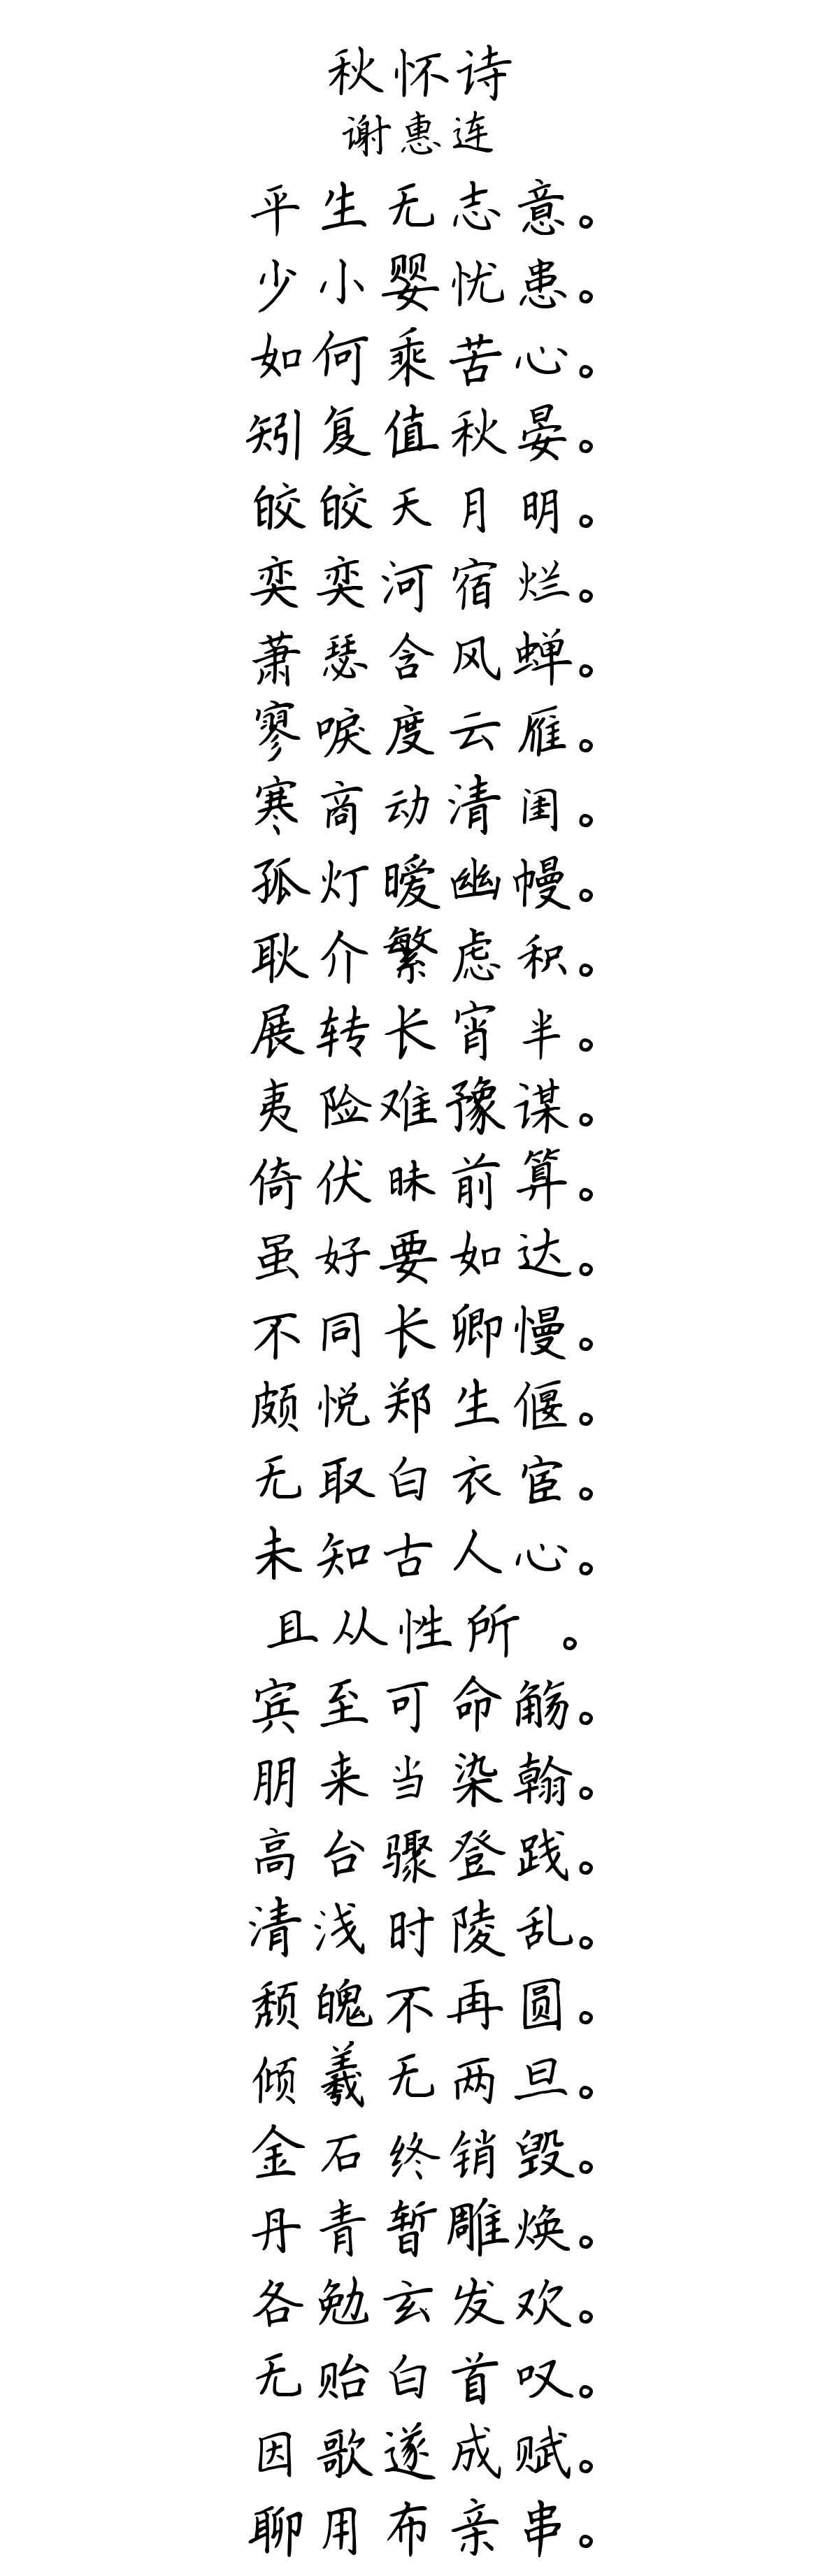 秋怀诗
谢惠连
平生无志意。
少小婴忧患。
如何乘苦心。
矧复值秋晏。
皎皎天月明。
奕奕河宿烂。
萧瑟含风蝉。
寥唳度云雁。
寒商动清闺。
孤灯暧幽幔。
耿介繁虑积。
展转长宵半。
夷险难豫谋。
倚伏昧前算。
虽好要如达。
不同长卿慢。
颇悦郑生偃。
无取白衣宦。
未知古人心。
且从性所 。
宾至可命觞。
朋来当染翰。
高台骤登践。
清浅时陵乱。
颓魄不再圆。
倾羲无两旦。
金石终销毁。
丹青暂雕焕。
各勉玄发欢。
无贻白首叹。
因歌遂成赋。
聊用布亲串。